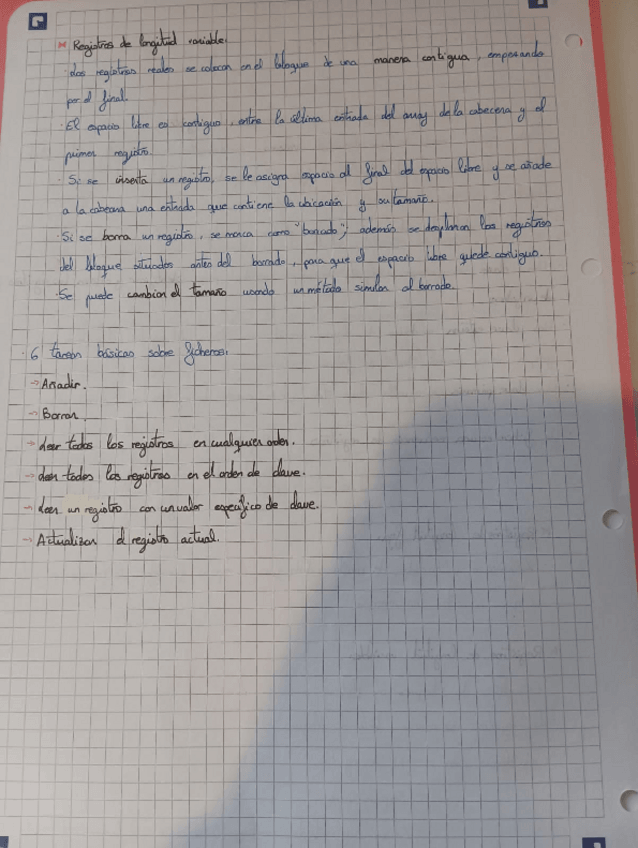 * Registros de longitud variable.
· Los registros reales se colocan en el bloque de una manera contigua, empezando
por el final.
· El espacio libre es contiguo, entre la última entrada del array de la cabecera y el
primer registro.
· Si se inserta un registro, se le asigna espacio al final del espacio libre y se añade
a la cabecera una entrada que contiene la ubicación y su tamaño.
· Si se borra un registro, se marca como "borrado"; además se desplazan los registros
del bloque situados antes del borrado, para que el espacio libre quede contiguo.
· Se puede cambiar el tamaño usando un método similar al borrado.
· 6 tareas básicas sobre ficheros.
→ Añadir.
→ Borrar.
→ Leer todos los registros en cualquier orden.
→ Leer todos los registros en el orden de clave.
→ Leer un registro con un valor específico de clave.
→ Actualizar el registro actual.